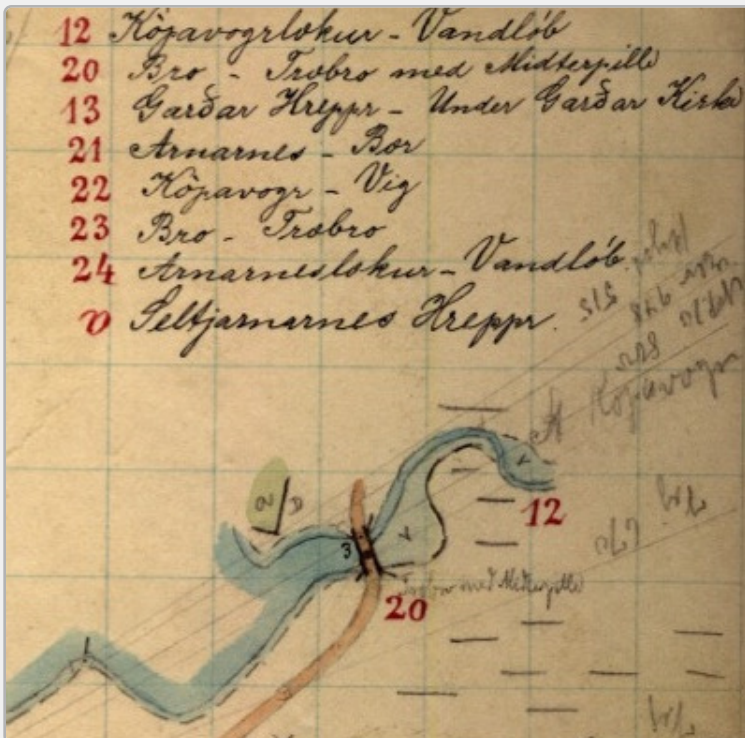 12 Kópavogrlækur - Vandlöb
20 Bro - Træbro med Midterpille
13 Garðar Hreppr - Under Garðar Kirke
21 Arnarnes - Bær
22 Kópavogr - Vig
23 Bro - Træbro
24 Arnarneslækur - Vandlöb
v Seltjarnarnes Hreppr.
515
Kópavogr
12
3
Træbro med Midterpille
20